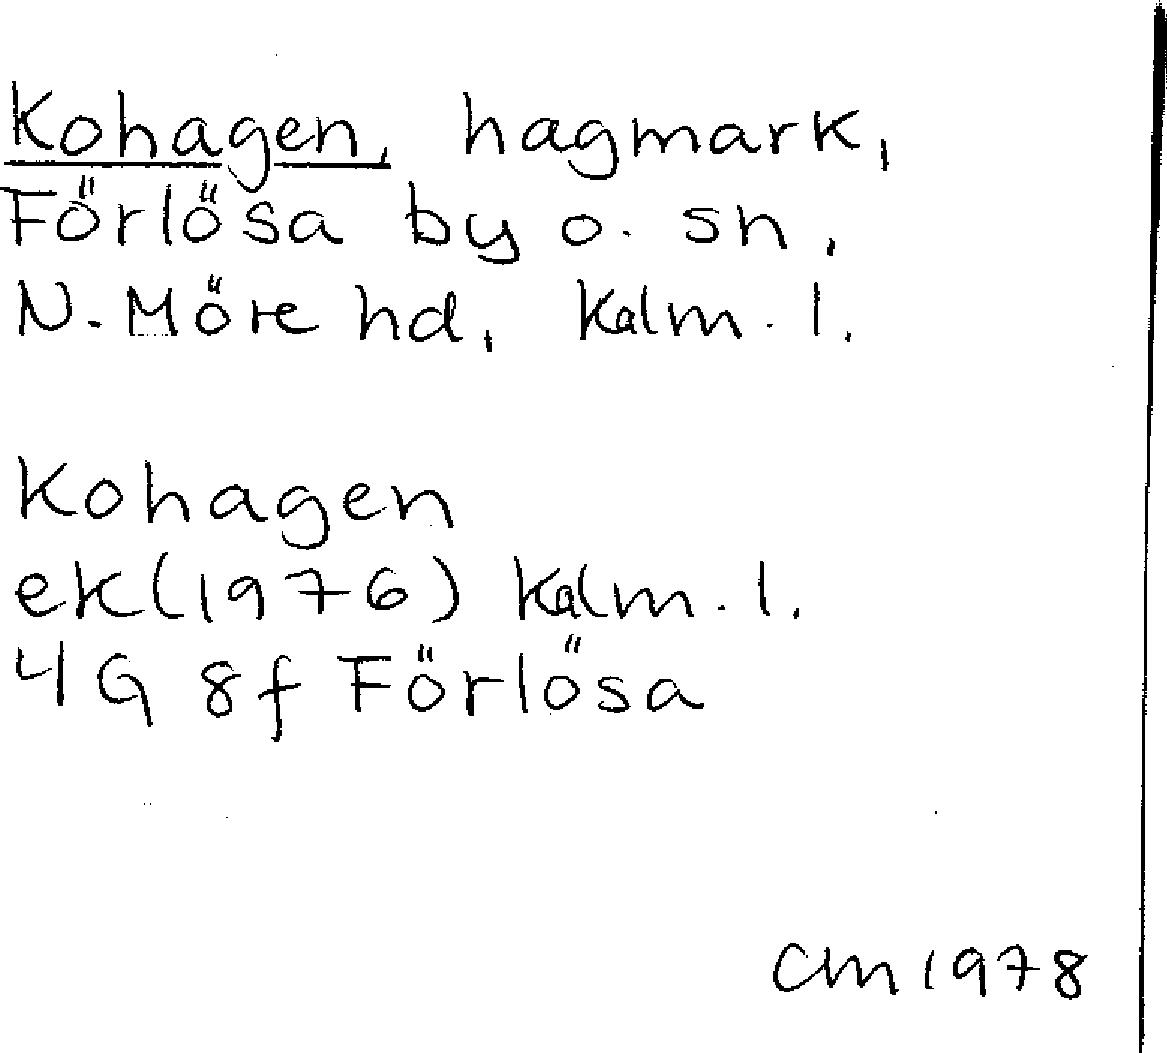 Kohagen, hagmark,
Förlösa by o. sn,
N. Möre hd, Kalm. l.
Kohagen
ek (1976) Kalm. l.
4G 8f Förlösa
CM 1978